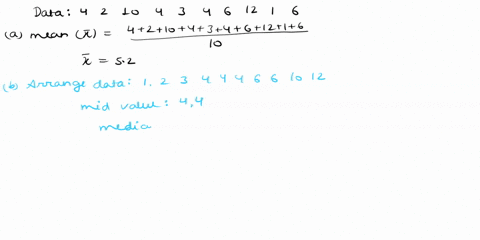 Data: 4 2 10 4 3 4 6 12 1 6
(a) mean (x̄) = 4+2+10+4+3+4+6+12+1+6
10
x̄ = 5.2
(b) Arrange data: 1, 2 3 4 4 4 6 6 10 12
mid value: 4,4
media